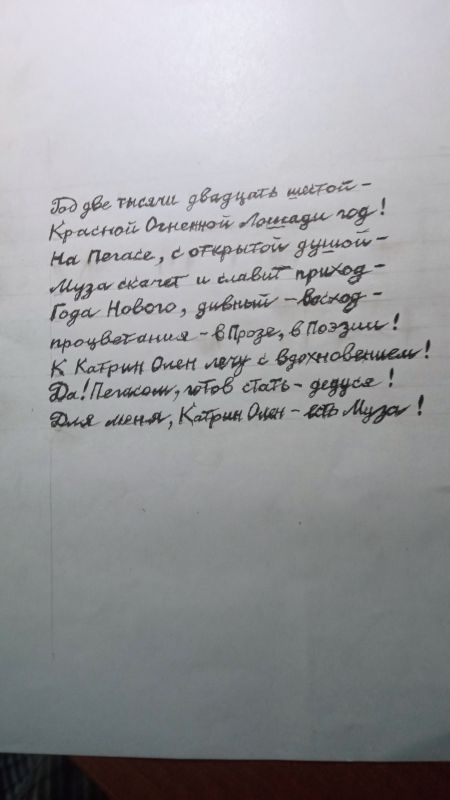 Год две тысячи двадцать шестой -
Красной Огненной Лошади год!
На Пегасе, с открытой душой -
Муза скачет и славит приход -
Года Нового, дивный - восход -
процветания - в Прозе, в Поэзии!
К Катрин Олен лечу с вдохновением!
Да! Пегасом, готов стать - дедуся!
Для меня, Катрин Олен - есть Муза!